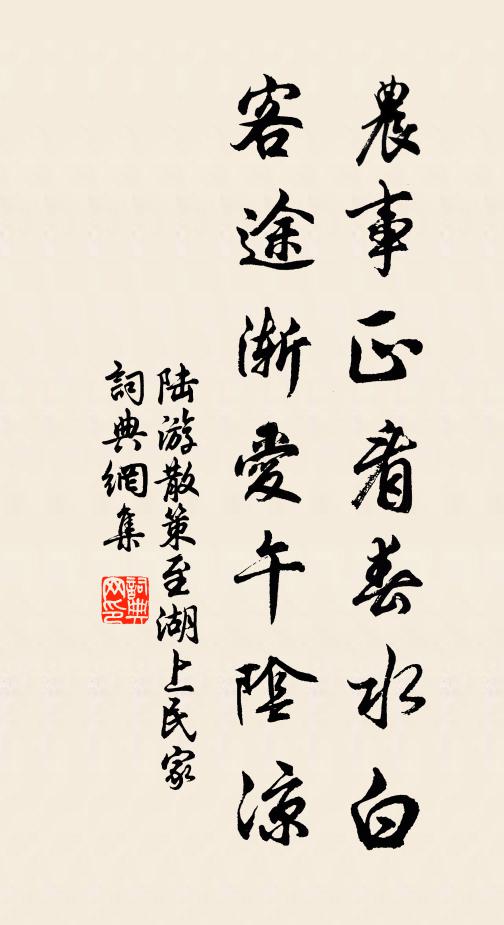 農事正看春水白
客途漸愛午陰涼
陸游散策至湖上民家
詞典網集
詞典网印